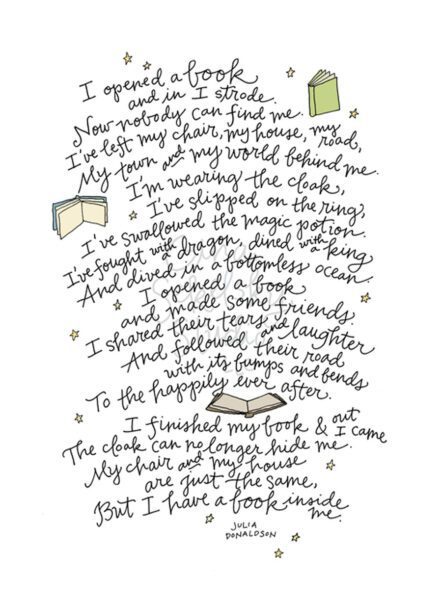 I opened a book
and in I strode.
Now nobody can find me.
I've left my chair, my house, my road,
My town and my world behind me.
I'm wearing the cloak,
I've slipped on the ring,
I've swallowed the magic potion.
I've fought with a dragon, dined with a king
And dived in a bottomless ocean.
I opened a book
and made some friends.
I shared their tears and laughter
And followed their road
with its bumps and bends
To the happily ever after.
I finished my book & out I came
The cloak can no longer hide me.
My chair and my house
are just the same,
But I have a book inside me.
JULIA
DONALDSON